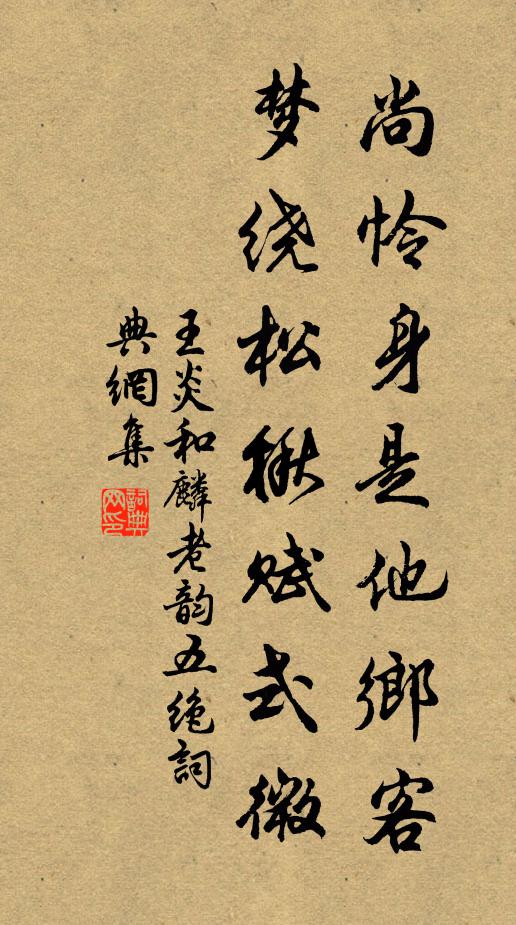 尚怜身是他鄉客
梦绕松楸赋式微
王炎和麟老韵五绝詞
典網集
詞典网印